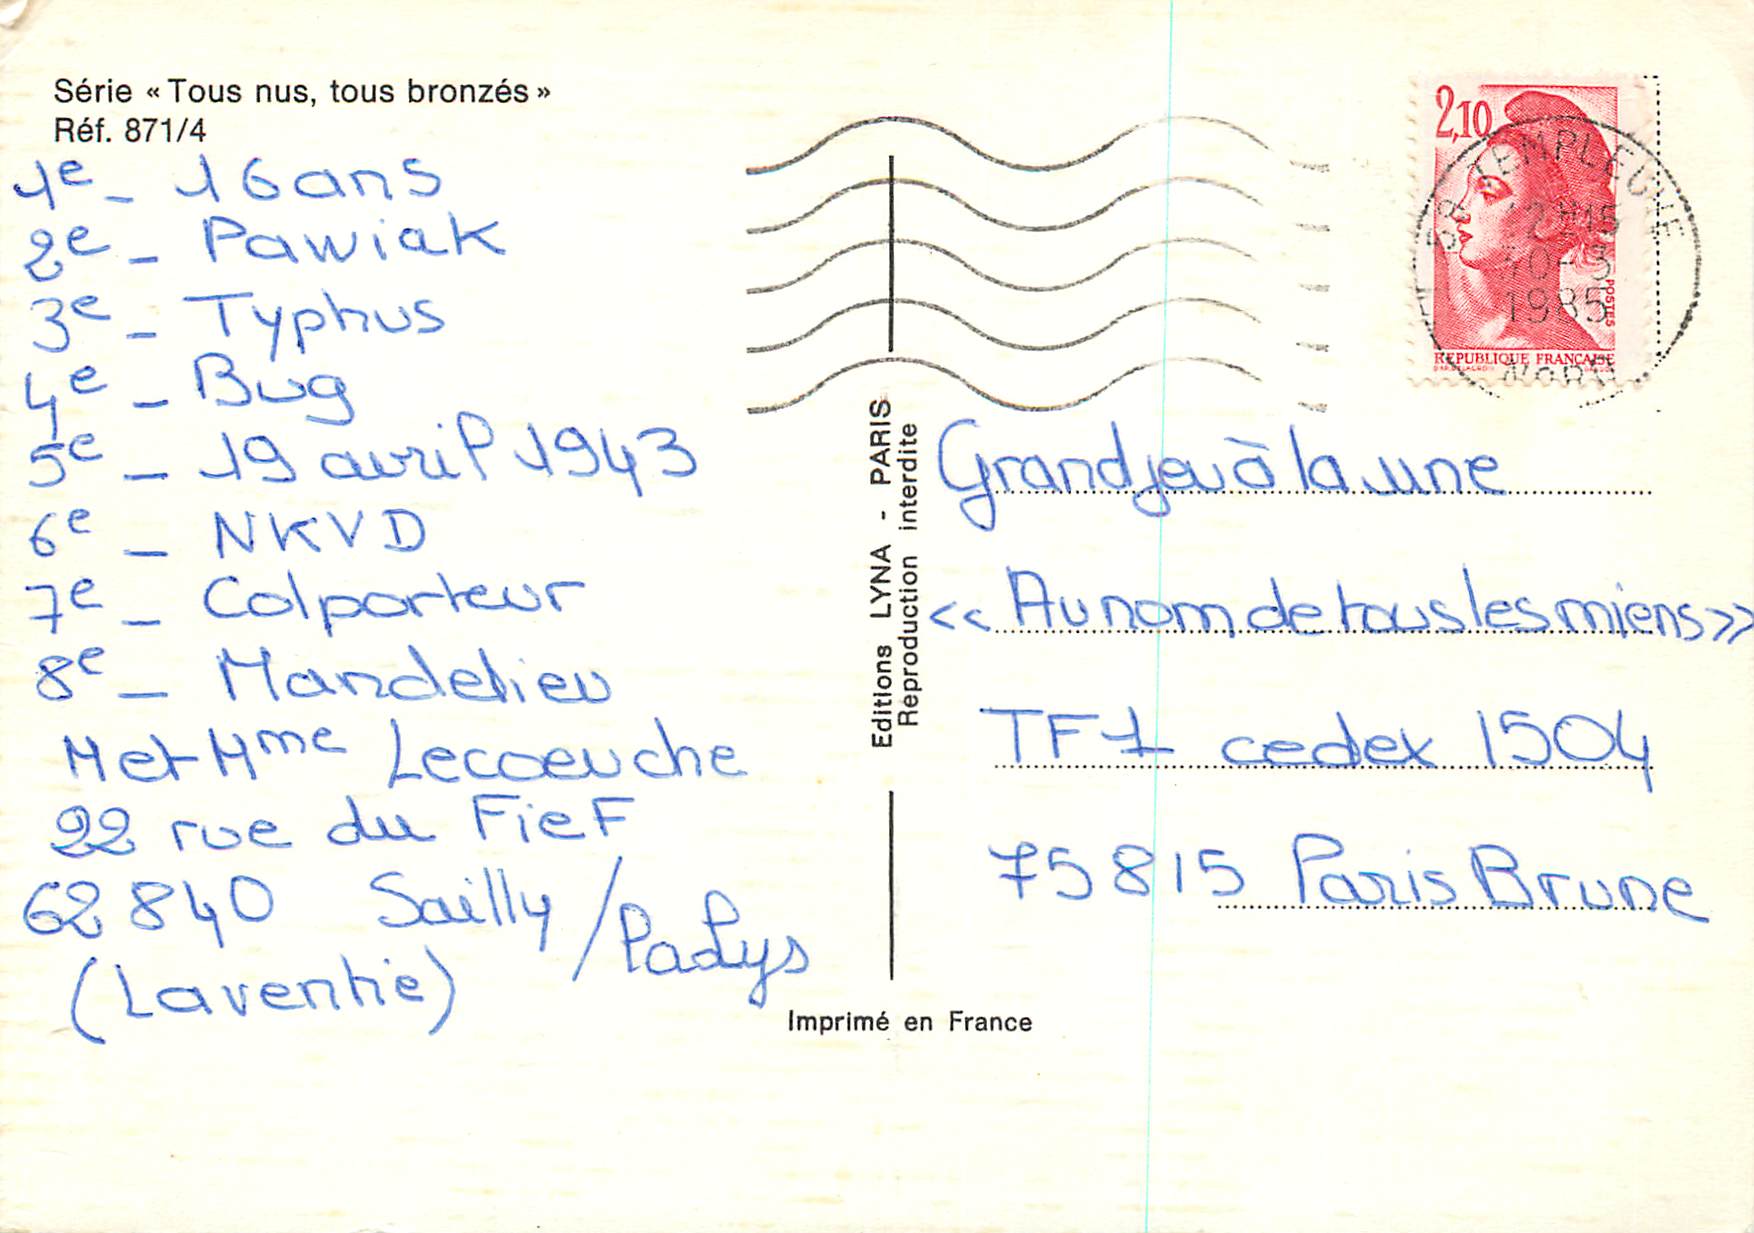 Série « Tous nus, tous bronzés »
Réf. 871/4
1e - 16 ans
2e - Pawiak
3e - Typhus
4e - Bug
5e - 19 avril 1943
6e - NKVD
7e - Colporteur
8e - Mandelieu
M et Mme Lecoeuche
22 rue du Fief
62840 Sailly / PaLys
(Laventie)
Editions LYNA - PARIS
Reproduction interdite
Imprimé en France
2,10
POSTES
REPUBLIQUE FRANÇAISE
TEMPLEUVE
12H15
10-3
1985
NORD
Grand jeu à la une
<< Au nom de tous les miens >>
TF1 cedex 1504
75815 Paris Brune